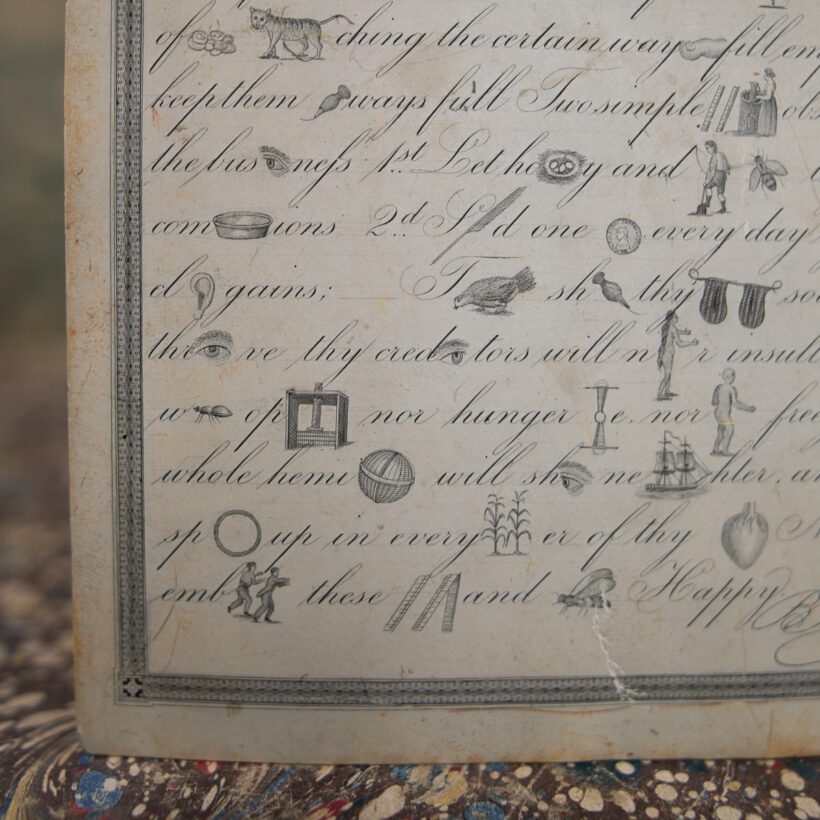 of ching the certain way fill
keep them ways full Two simple
the bus ness 1st Let ho y and
com ions 2d S d one every day
cl gains; T sh thy
th ve thy cred tors will n r insult
w op nor hunger e, nor
whole hemi will sh ne hler,
sp up in every er of thy
emb these and Happy